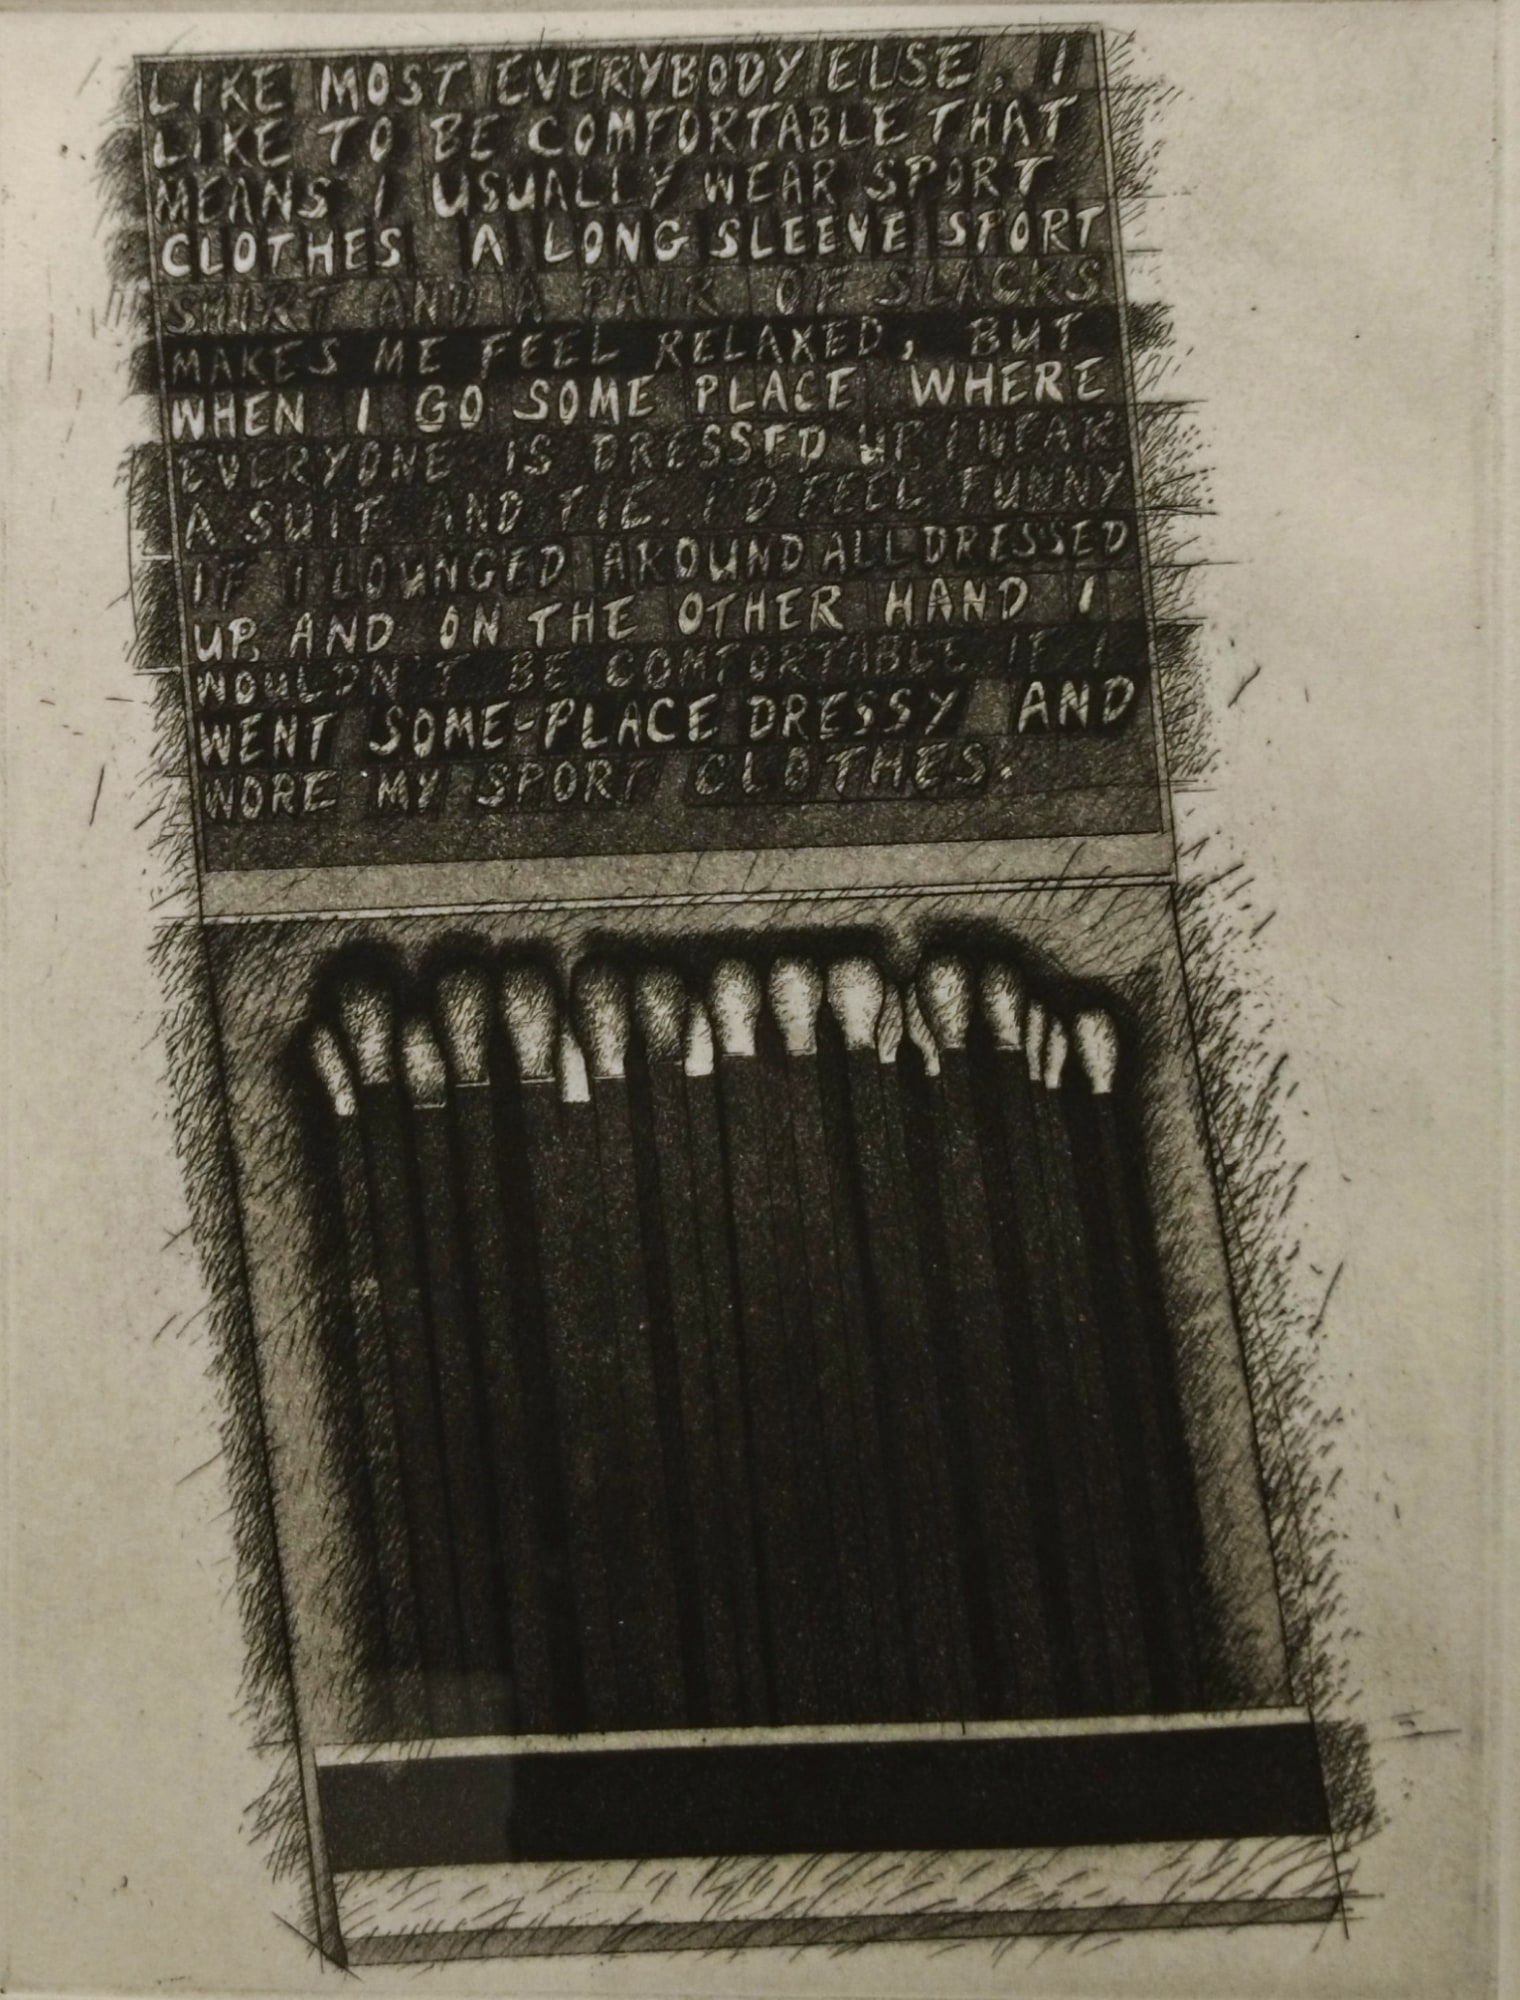 LIKE MOST EVERYBODY ELSE, I
LIKE TO BE COMFORTABLE THAT
MEANS I USUALLY WEAR SPORT
CLOTHES A LONG SLEEVE SPORT
SHIRT AND A PAIR OF SLACKS
MAKES ME FEEL RELAXED, BUT
WHEN I GO SOME PLACE WHERE
EVERYONE IS DRESSED UP, I WEAR
A SUIT AND TIE. I'D FEEL FUNNY
IF I LOUNGED AROUND ALL DRESSED
UP, AND ON THE OTHER HAND I
WOULDN'T BE COMFORTABLE IF I
WENT SOME-PLACE DRESSY AND
WORE MY SPORT CLOTHES.